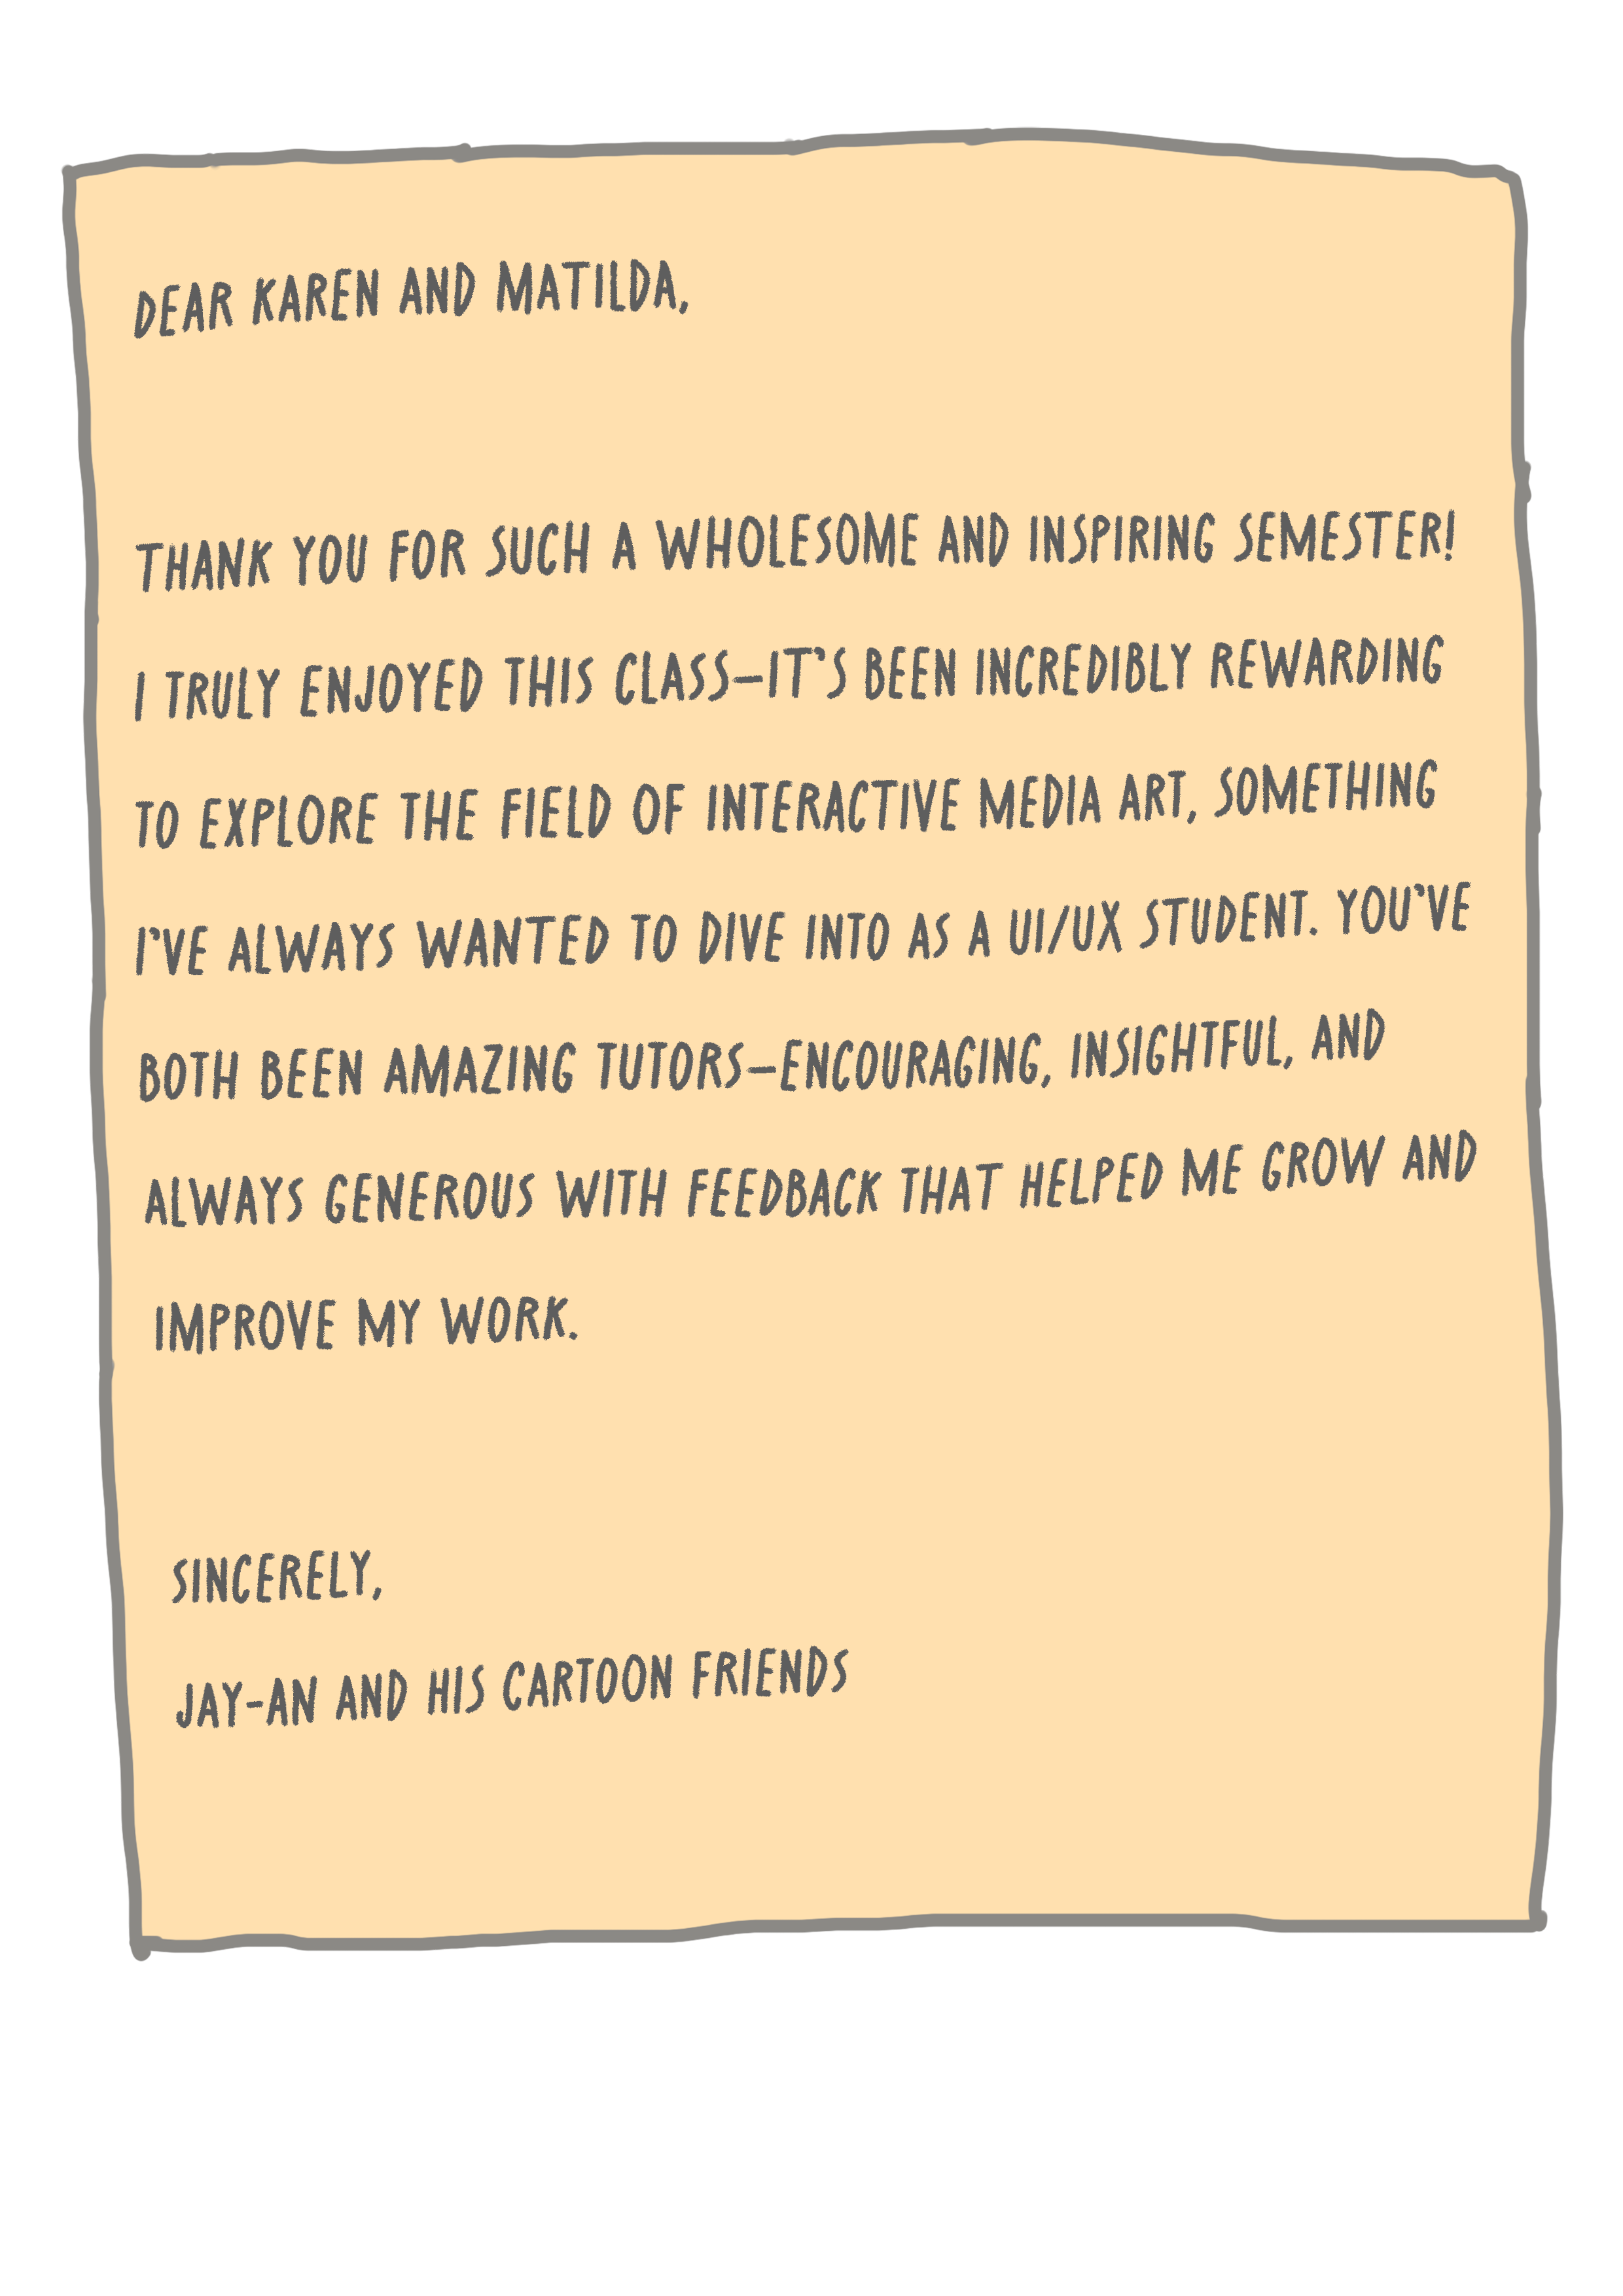 DEAR KAREN AND MATILDA,
THANK YOU FOR SUCH A WHOLESOME AND INSPIRING SEMESTER!
I TRULY ENJOYED THIS CLASS—IT'S BEEN INCREDIBLY REWARDING
TO EXPLORE THE FIELD OF INTERACTIVE MEDIA ART, SOMETHING
I'VE ALWAYS WANTED TO DIVE INTO AS A UI/UX STUDENT. YOU'VE
BOTH BEEN AMAZING TUTORS—ENCOURAGING, INSIGHTFUL, AND
ALWAYS GENEROUS WITH FEEDBACK THAT HELPED ME GROW AND
IMPROVE MY WORK.
SINCERELY,
JAY-AN AND HIS CARTOON FRIENDS